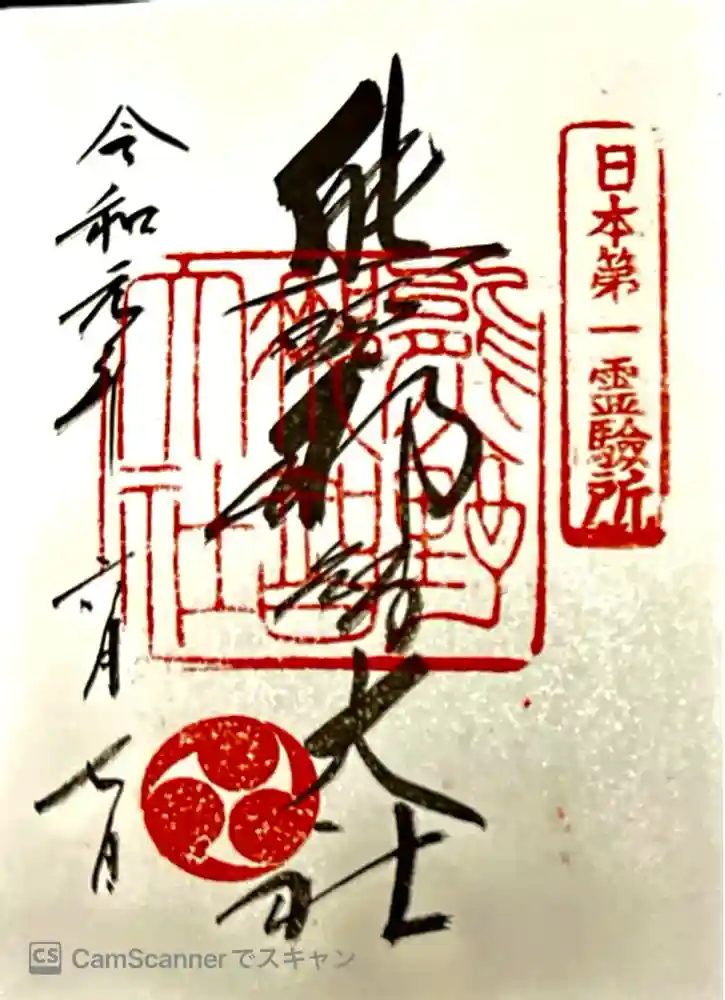 日本第一霊験所
熊野
大社
令和元年六月七日
CS CamScannerでスキャン